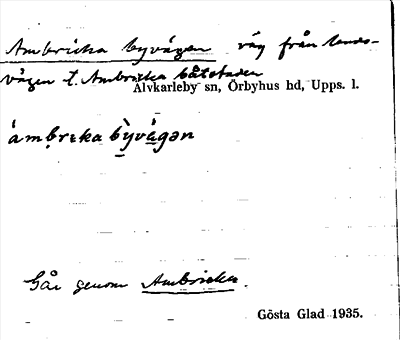 Ambricka byvägen väg från lands-
vägen t. Ambricka båtstaden
Älvkarleby sn, Örbyhus hd, Upps. l.
ámbrɩka bỳvä́gən
Går genom Ambricka.
Gösta Glad 1935.